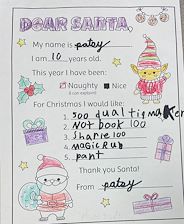 DEAR SANTA,
My name is patey
I am 10 years old.
This year I have been:
Naughty Nice
(I can explain)
For Christmas I would like:
1. 300 qual tig maker
2. Not book 100
3. Sharpie 100
4. magic Rub
5. pant
Thank you Santa!
From patey